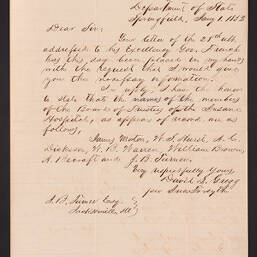 Department of State
Springfield, Jany 1, 1853
Dear Sir:
Your letter of the 28th ult.
addressed to his Excellency Gov. French
has this day been placed in my hands
with the request that I would give
you the necessary information.
In reply, I have the honor
to state that the names of the members
of the Board of Trustees of the Insane
Hospital, as appears of record are as
follows,
James Morton, W. S. Hurst, A. C.
Dickson, W. B. Warren, William Brown,
A. Becraft and J. B. Turner.
Very respectfully Yours,
David L. Gregg
J. B. Turner Esq.
Jacksonville, Ill.